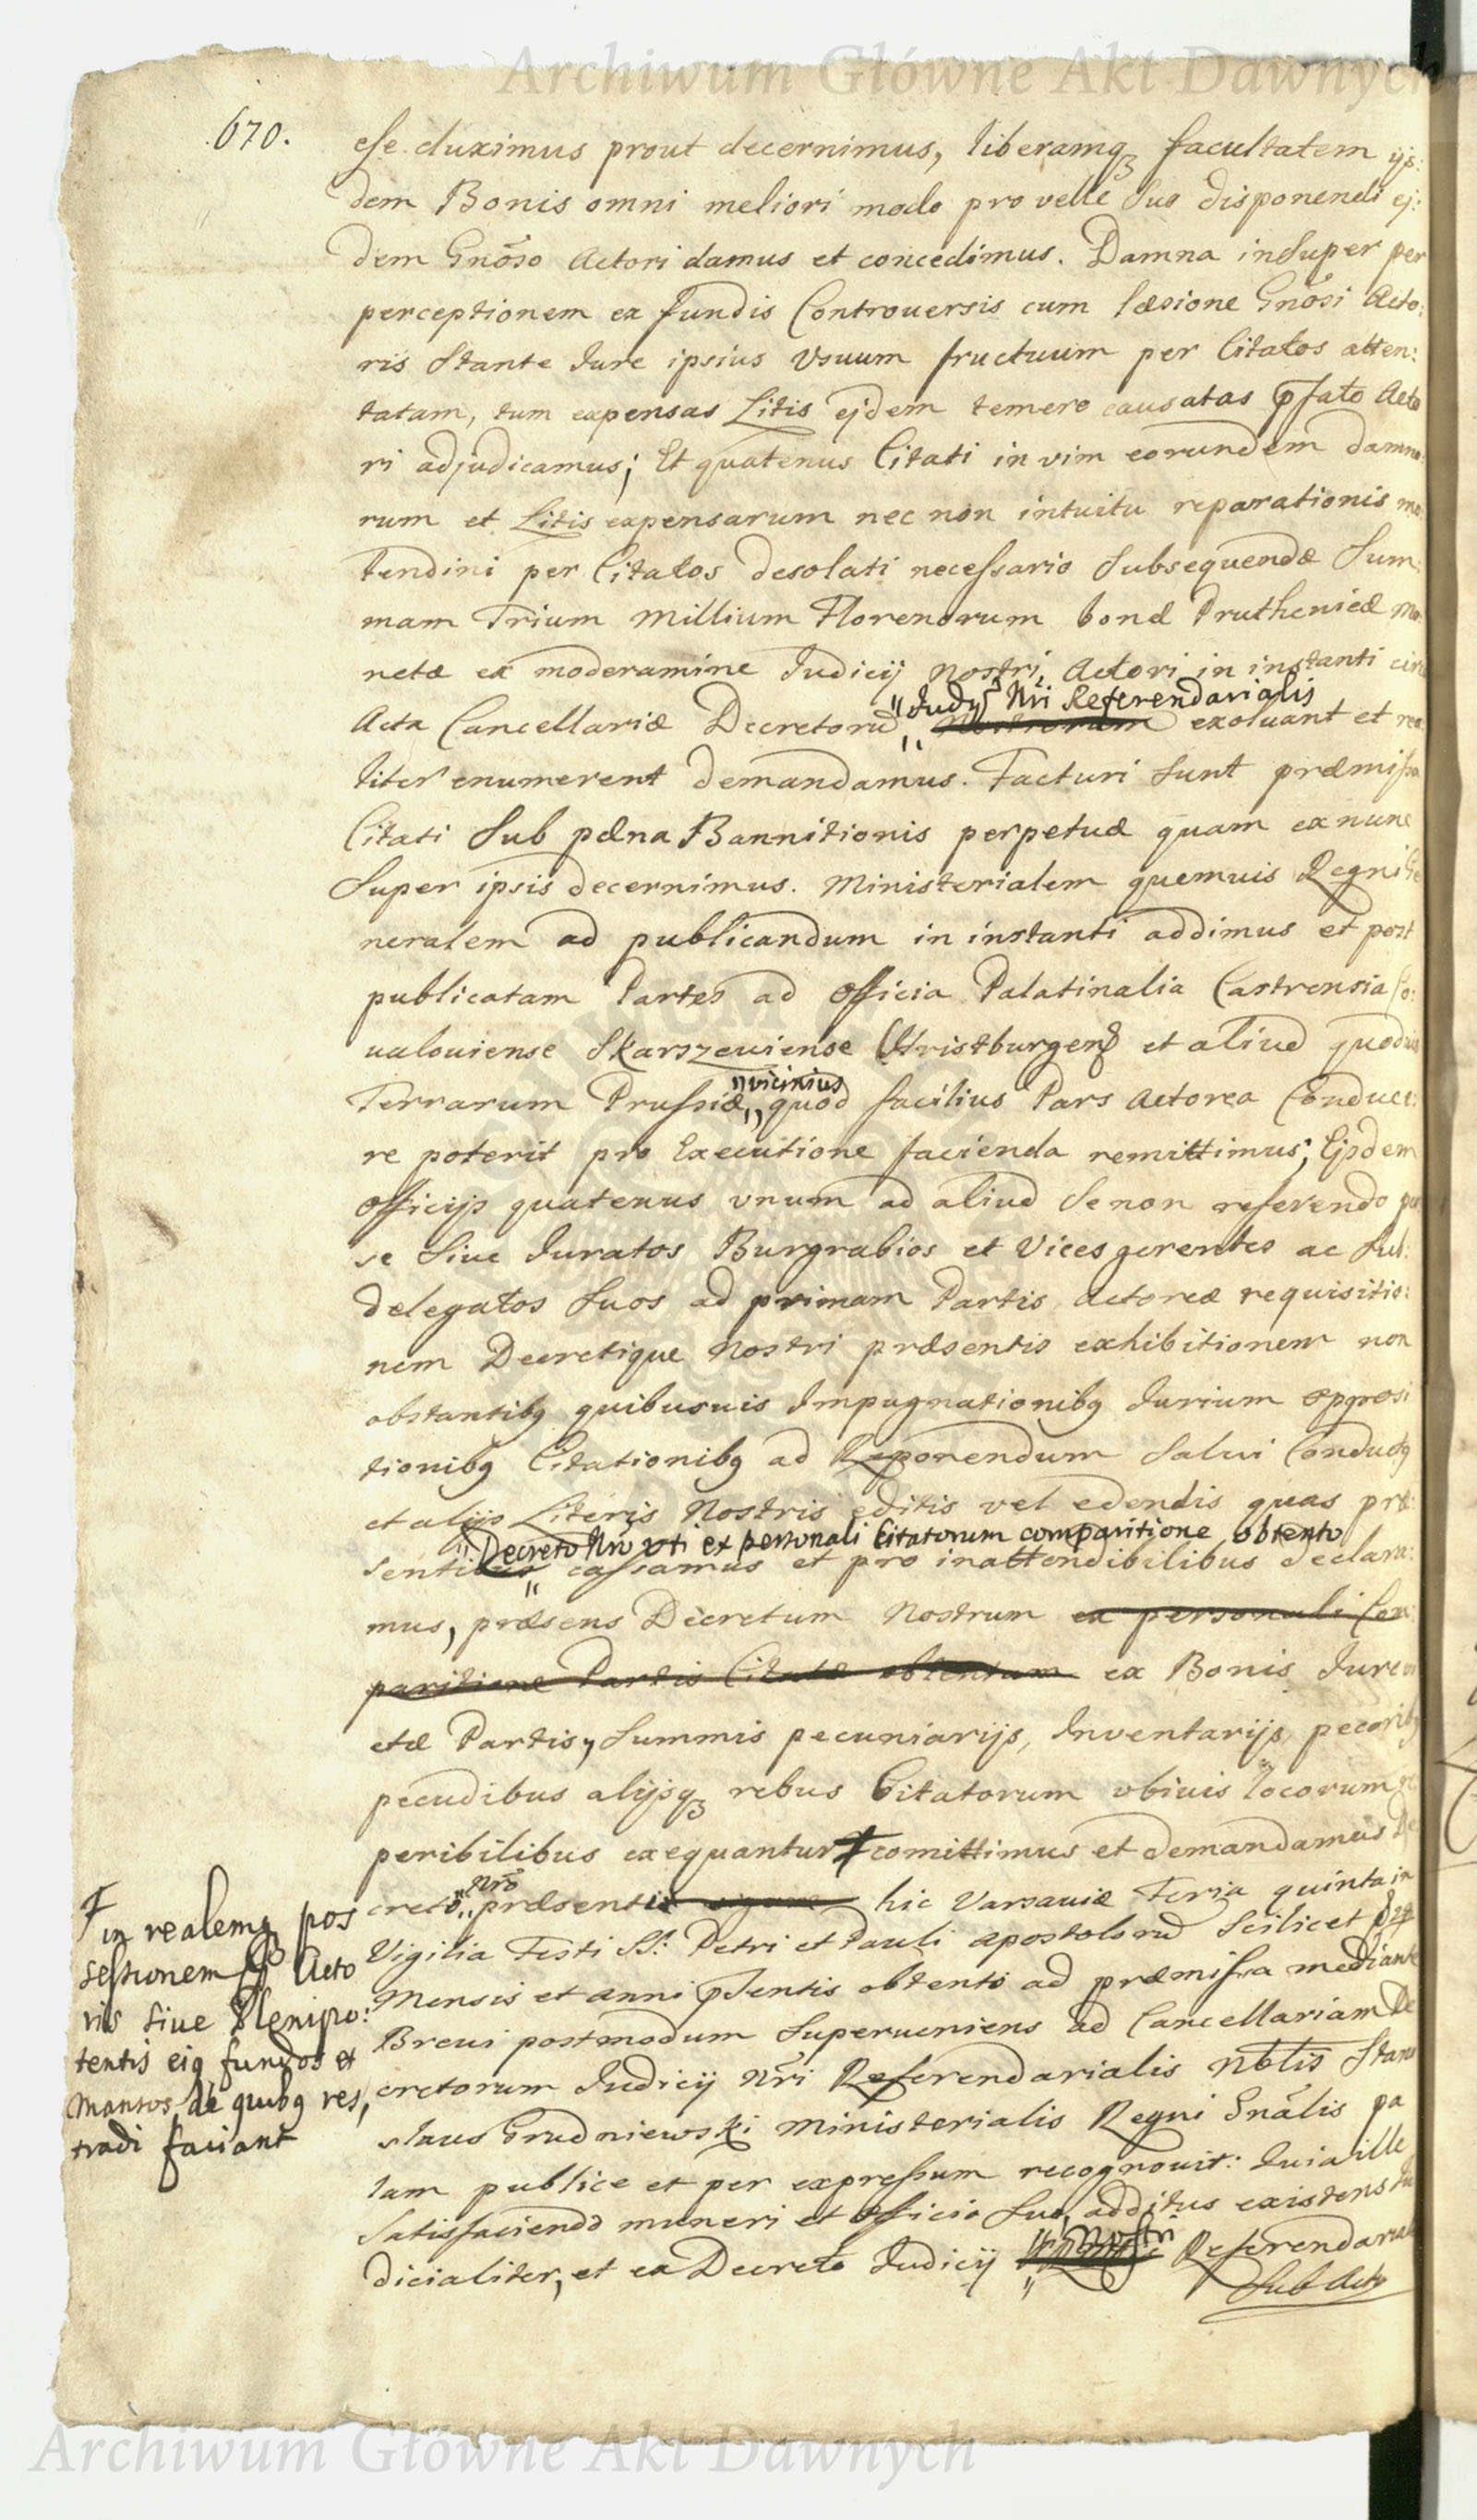 Archiwum Główne Akt Dawnych
670.
esse duximus prout decernimus, liberamq₃ facultatem ijs:
dem Bonis omni meliori modo pro velle suo disponendi ej:
dem Gnõso Actori damus et concedimus. Damna insuper per
perceptionem ex fundis Controversis cum læsione Gnõsi Acto:
ris Stante Jure ipsius Vsuum fructuum per Citatos atten:
tatam, tum expensas Litis ejdem temere causatas pfato Acto
ri adjudicamus; Et quatenus Citati in vim eorundem damno
rum et Litis expensarum nec non intuitu reparationis mo
lendini per Citatos desolati necessario subsequendæ Sum:
mam Trium Millium Florenorum bonæ Prutheniæ Mo
netæ ex moderamine Judicij Nostri, Actori in instanti circa
"Judij Nri Referendarialis
Acta Cancellariæ Decretorũ,, Nostrorum exoluant et rea
liter enumerent demandamus. Facturi sunt præmissa
Citati Sub pæna Bannitionis perpetuæ quam ex nunc
Super ipsis decernimus. Ministerialem quemuis Regni Ge
neralem ad publicandum in instanti addimus et post
publicatam Partes ad Officia Palatinalia Castrensia Co:
ualouiense Skarszeuiense Christburgen et aliud quoduis
"vicinius
Terrarum Prussiæ,, quod facilius Pars Actorea Conduce:
re poterit pro Executione facienda remittimus; Ejsdem
Officijs quatenus vnum ad aliud se non referendo per
se siue Juratos Burgrabios et Vices gerentes ac Sub:
delegatos suos ad primam Partis Actoreæ requisitio:
nem Decretique Nostri præsentis exhibitionem non
obstantibq quibusuis Impugnationibq Jurium opposi
tionibq Citationibq ad Reponendum Salui Conductq
et alijs Literis Nostris editis vel edendis quas præ:
"Decreto Nrõ vti ex personali Citatorum comparitione obtento
sentibus cassamus et pro inattendibilibus declara:
mus, præsens Decretum Nostrum ex personali Com
paritione Partis Citatæ obtentum ex Bonis Jurevi
ctæ Partis, Summis pecuniarijs, Inventarijs, pecoribq
pecudibus alijsq₃ rebus Citatorum vbiuis locorum re
peribilibus exequantur ‡ comittimus et demandamus De
Nrõ
creto,, præsenti vigore hic Varsauiæ Feria quinta in
Vigilia Festi SS: Petri et Pauli Apostolorũ scilicet
Mensis et anni pñtis obtento ad præmissa mediante
Breui postmodum superueniens ad Cancellariam De
cretorum Judicij Nri Referendarialis Nblis Stani
slaus Grudniewski Ministerialis Regni Gnãlis pa
lam publice et per expressum recognouit: Quia ille
Satisfaciendo muneri et officio suo, additus existens Ju
Nostri
dicialiter, et ex Decreto Judicij Referendariali
Sub Actu
‡ in realemq₃ pos
sessionem Acto
ris siue Plenipo:
tentis eiq fundos et
Mansos de quibq res,
tradi faciant
Archiwum Główne Akt Dawnych